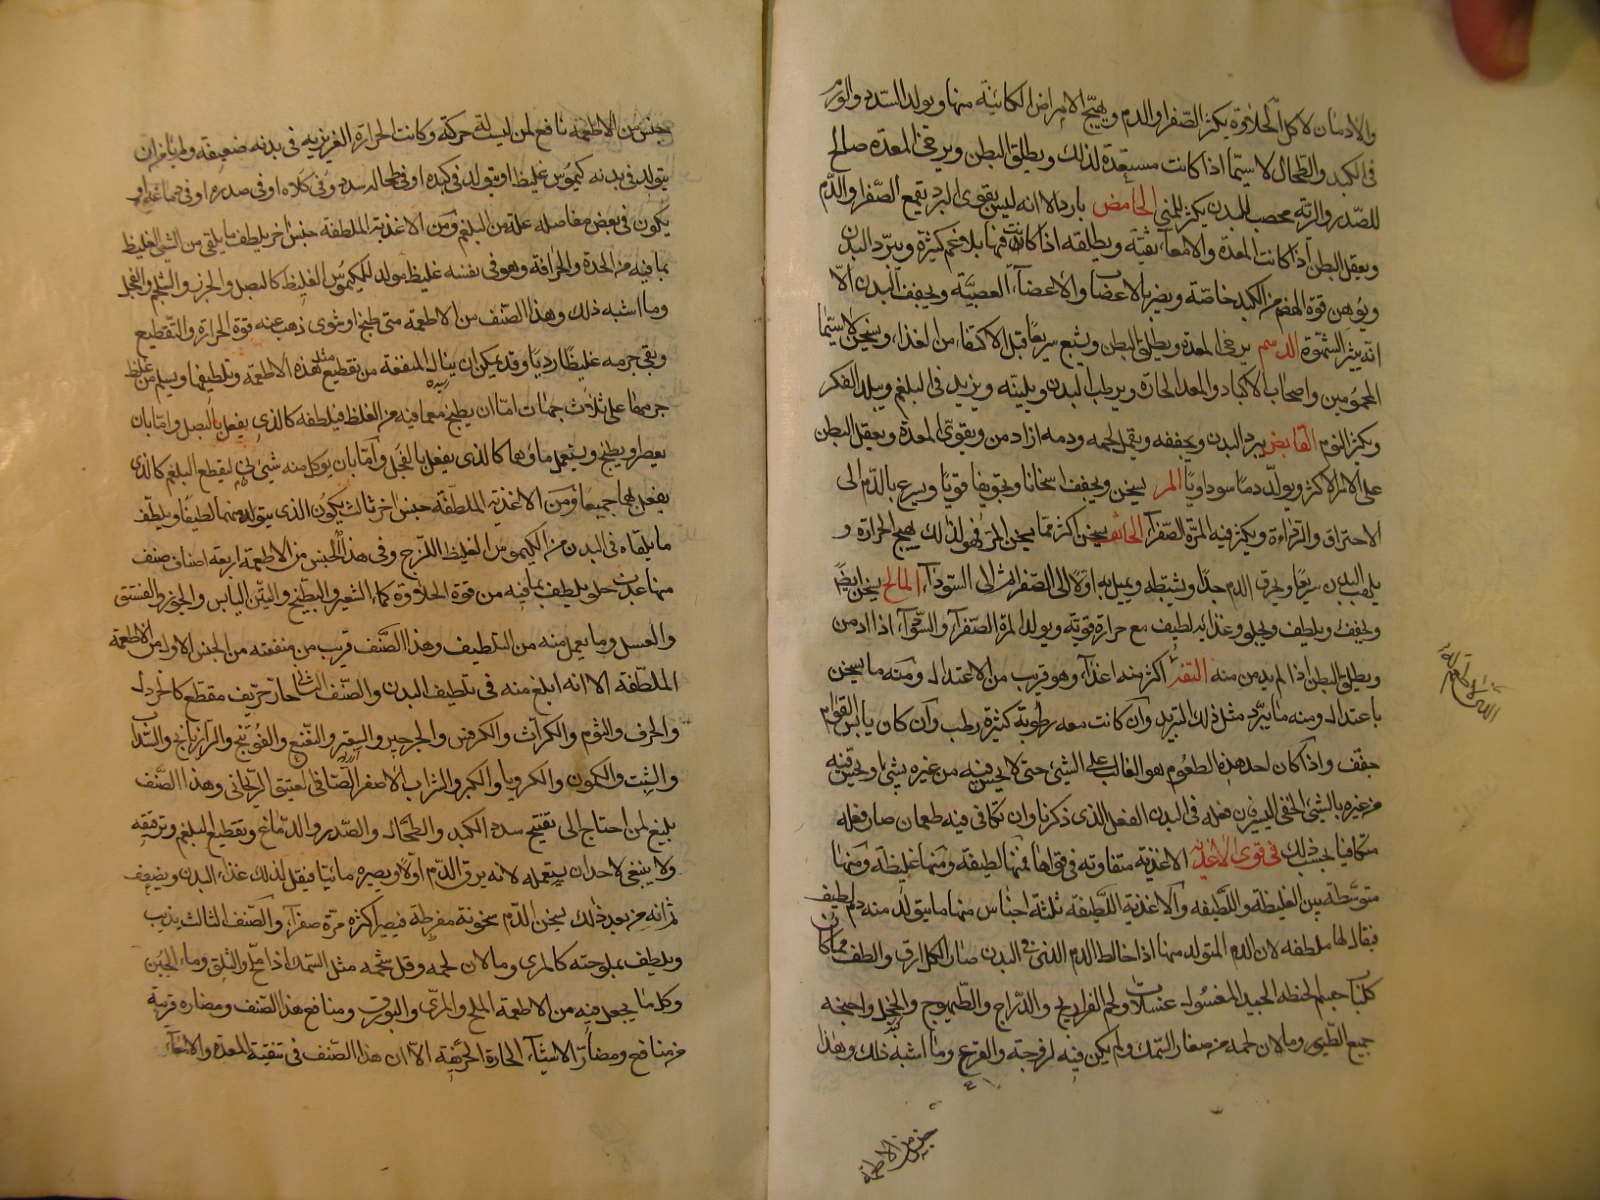 والادمان لاكل الحلاوة يكثر الصفرا والدم ويهيج الامراض الكائنة منها ويولد السدد والورم
فى الكبد والطحال لاسيما اذا كانت مستعدة لذلك ويطلق البطن ويرخى المعدة صالح
للصدر والرية مخصب للبدن يكثر للمنى الحامض بارد الا انه ليس بقوى البرد يقمع الصفرا والدم
ويعقل البطن اذا كانت المعدة والامعاء نقية ويطلقه اذا كانت فيها بلاغم كثيرة ويبرد البدن
ويوهن قوة الهضم من الكبد خاصة ويضر بالاعصاب والاعضاء العصبية ويجفف البدن الا
انه يثير الشهوة الدسم يرخى المعدة ويطلق البطن ويشبع سريعا قبل الاكتفاء من الغذاء ويسخن لاسيما
المحمومين واصحاب الاكباد والمعد الحارة ويرطب البدن ويلينه ويزيد فى البلغم ويبلد الفكر
ويكثر النوم القابض يبرد البدن ويجففه ويقل لحمه ودمه ان ادمن ويقوى المعدة ويعقل البطن
على الامر الاكثر ويولد دما سوداويا المر يسخن ويجفف اسخانا وتجفيفا قويا ويسرع بالدم الى
الاحتراق والرداءة ويكثر فيه المرة الصفرآ الحريف يسخن اكثر مما يسخن المر فهو لذلك يهيج الحرارة و
يلهب البدن سريعا ويحرق الدم جدا ويشيطه ويميل به اولا الى الصفرا ثم الى السودآء المالح يسخن ايضا
ويجفف ويلطف ويجلو وغذاءيه لطيف مع حرارة قوية ويولد المرة الصفرآ والسودآء اذا ادمن
ويطلق البطن اذا لم يدمن منه التفه اكثر منه اغذآء وهو قريب من الاعتدال ومنه ما يسخن
باعتدال ومنه ما يبرد مثل ذلك التبريد وان كانت معه رطوبة كثيرة رطب وان كان يابس القوام
جفف واذا كان احد هذه الطعوم هو الغالب على الشىء حتى لا يحس فيه من غيره بشىء او يحس فيه
من غيره بالشىء الخفى اليسير فان فعله فى البدن الفعل الذى ذكرنا وان تكافى فيه طعمان صار فعله
متكافيا بحسب ذلك فى قوى الاغذية الاغذية متفاوته فى قواها فمنها لطيفة ومنها غليظة ومنها
متوسطة بين الغليظة واللطيفه والاغذية اللطيفة ثلثة اجناس منها ما يتولد منه دم لطيف
فيقال لها ملطفه لان الدم المتولد منها اذا خالط الدم الذى فى البدن صار الكل ارق والطف مما كان
كلباب خبز الحنطه الجيد المغسول غسلات ولحم الفراريج والدراج والطيهوج والحجل واجنحة
جميع الطيور وما لان لحمه من صغار السمك ولم يكن فيه لزوجة والقرع وما اشبه ذلك وهذا
جنس من الاطعمة
جنس من الاطعمه نافع لمن ليست له حركة وكانت الحرارة الغريزيه فى بدنه ضعيفه ولم يامن ان
يتولد فى بدنه كيموس غليظ او يتولد فى كبده او فى طحاله سدد او فى كلاه او فى صدره او فى دماغه او
يكون فى بعض مفاصله علة من البلغم ومن الاغذية الملطفة جنس اخر يلطف ما يلقى من الشىء الغليظ
بما فيه من الحدة والحرافة وهو فى نفسه غليظ يولد للكيموس الغليظ كالبصل والجزر والشلجم والفجل
وما اشبه ذلك وهذا الصنف من الاطعمة متى طبخ او شوى ذهب عنه قوة الحرارة والتقطيع
وبقى جرمه غليظا رديا وقد يمكن ان ينال المنفعة من تقطيع مثل هذه الاطعمة وتلطيفها ويسلم من غلظ
جرمها على ثلاث جهات اما ان يطبخ مع ما فيه من الغلظ فيلطفه كالذى يفعل بالبصل واما بان
يعصر او يطبخ ويستعمل ماؤهما كالذى يفعل بالفجل واما بان يوكل منه شىء نى ليقطع البلغم كالذى
يفعل بهما جميعا ومن الاغذية الملطفة جنس اخر ثالث يكون الذى يتولد منهما لطيفا ويلطف
ما يلقاه فى البدن من الكيموس الغليظ اللزج وفى هذا الجنس من الاطعمة اربعه اصناف صنف
منها عذب حلو يلطف بما فيه من قوة الحلاوة كماء الشعير والبطيخ والتين اليابس والجوز والفستق
والعسل وما يعمل منه من الناطف وهذا الصنف قريب من منفعته من الجنس الاول من الاطعمة
الملطفة الا انه ابلغ منه فى تلطيف البدن والصنف الثانى حار حريف مقطع كالخردل
والحرف والثوم والكراث والكرفس والجرجير والسعتر والنعنع والفوتنج والرازيانج والسداب
والشبت والكمون والكرويا والكبر والشراب الاصفر الصافى العتيق الريحانى وهذا الصنف
بليغ لمن احتاج الى تفتيح سدد الكبد والطحال والصدر والدماغ وتقطيع البلغم وترقيقه
ولا ينبغى لاحد ان يستعمله لانه يرق الدم اولا ويصيره مائيا فيقل لذلك غذاء البدن ويضعف
ثم انه من بعد ذلك يسخن الدم سخونة مفرطة فيصير اكثره مرة صفرآء والصنف الثالث يذيب
ويلطف بملوحته كالمرى وما لان لحمه وقل شحمه مثل السمك اذا ملح والسلق وماء الجبن
وكل ما يجعل فيه من الاطعمة الملح والمرى والبورق ومنافع هذا الصنف ومضاره قريبة
من منافع ومضار الاشياء الحارة الحريفة الا ان هذا الصنف فى تنقية المعدة والامعاء